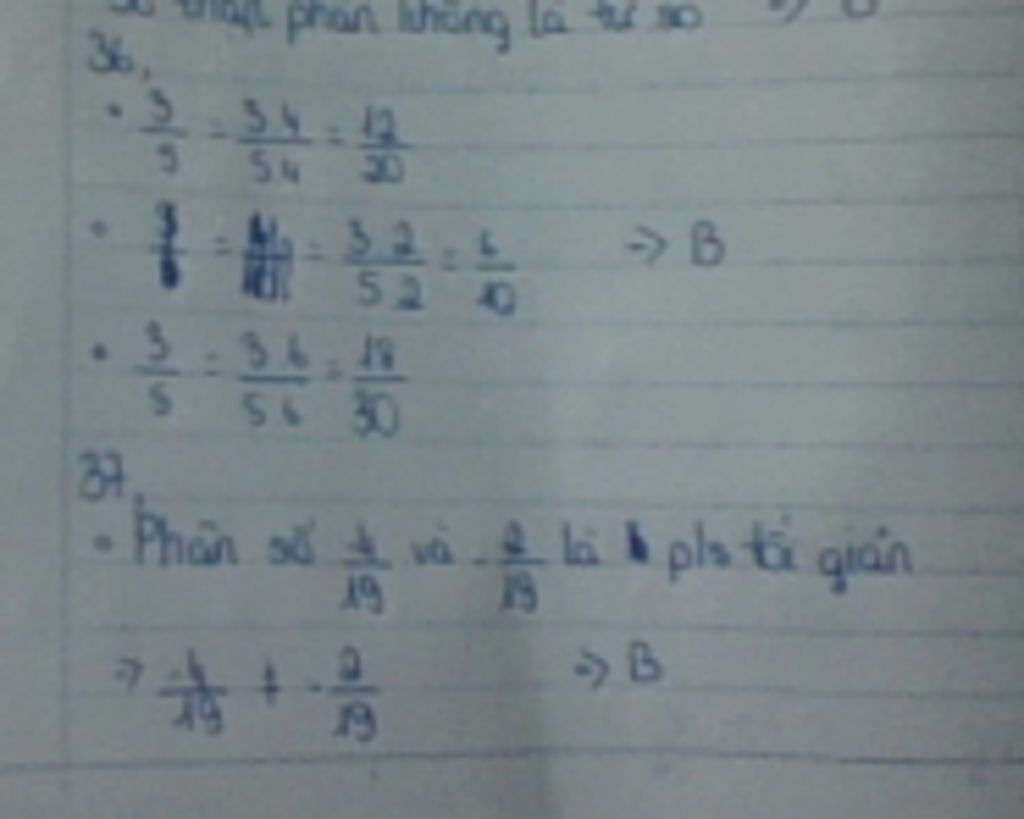 phân không là
36,
• 3/5 = 3.4/5.4 = 12/20
= 3.2/5.2 = 6/10 => B
• 3/5 = 3.6/5.6 = 18/30
37,
• Phân số /19 và -2/19 là pls tối giản
=> /19 -2/19 => B